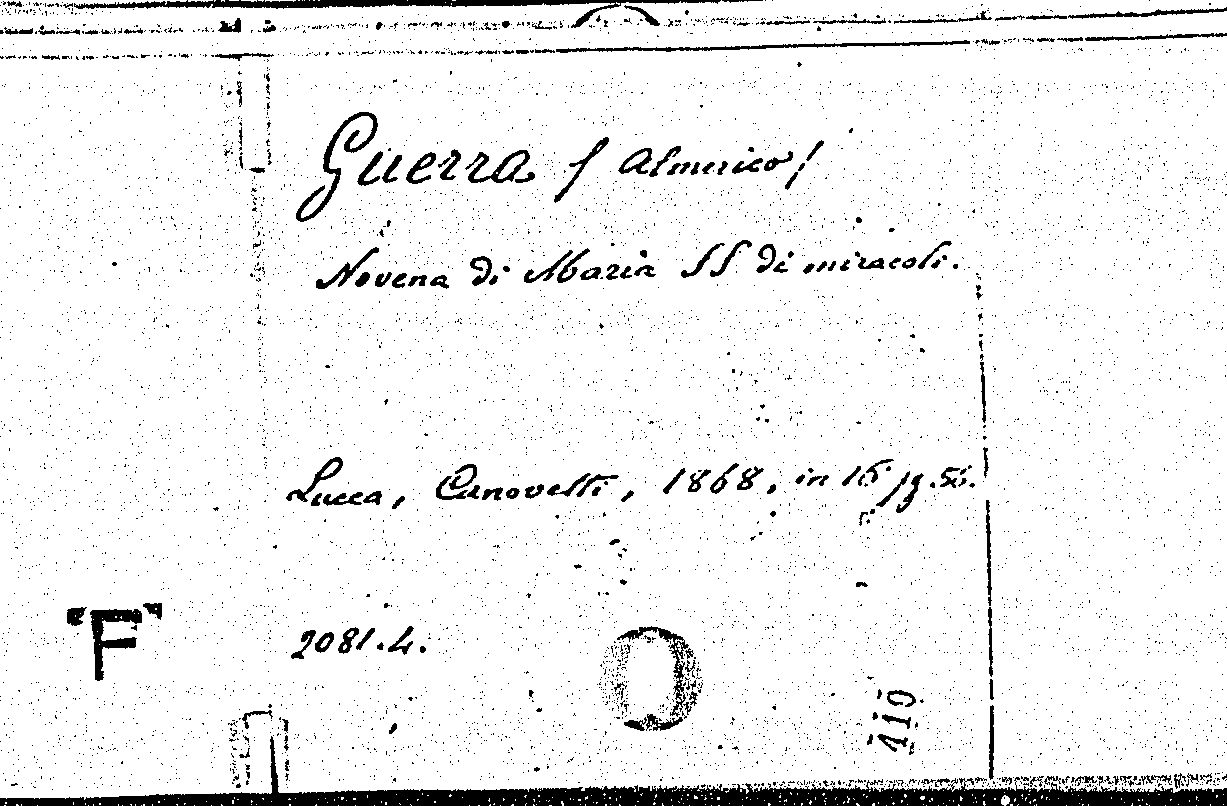 Guerra / Almerico /
Novena di Maria SS di miracoli.
Lucca, Canovetti, 1868, in 16 pg. 56.
"F"
2081.4.
110